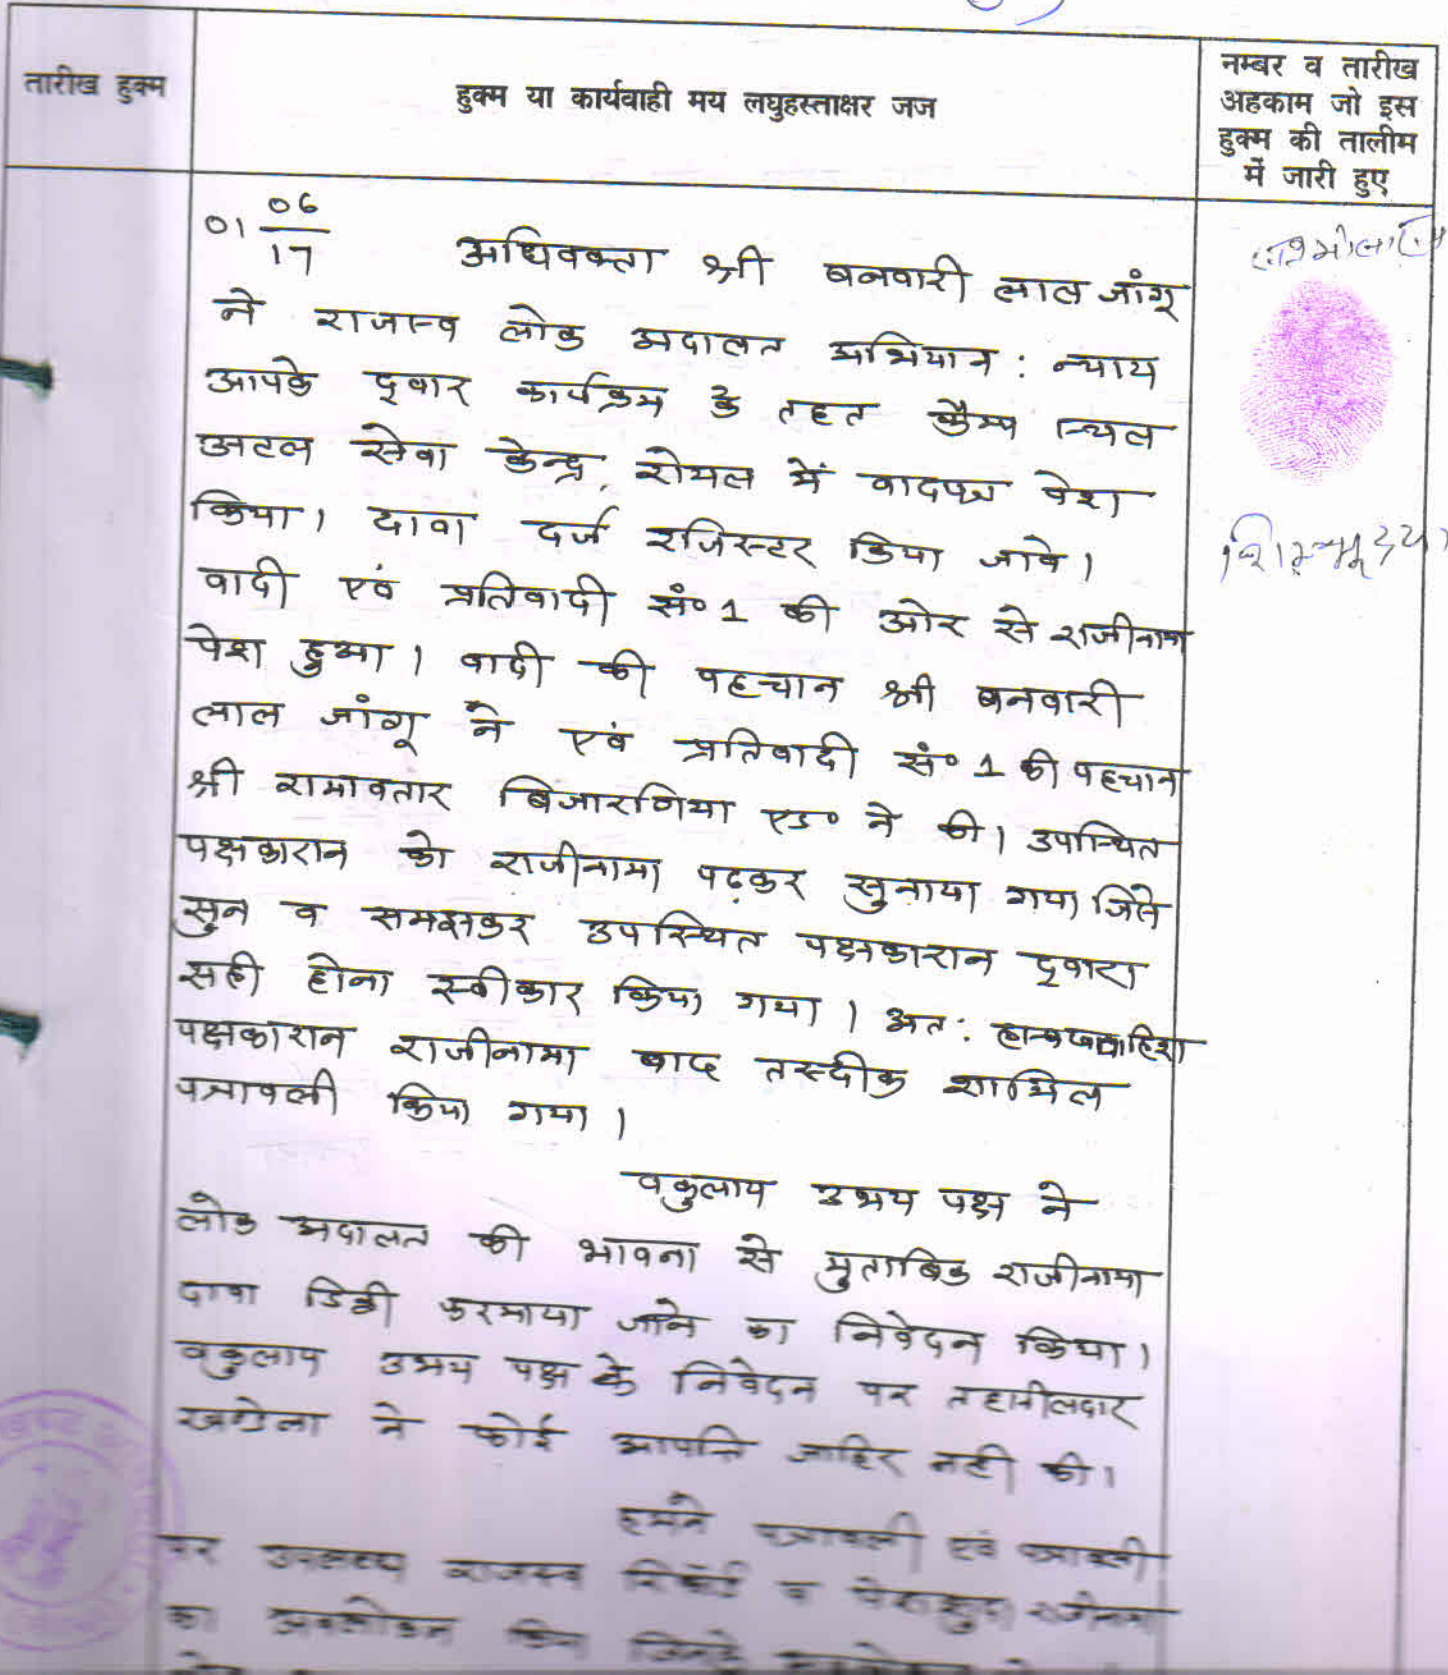 तारीख हुक्म
हुक्म या कार्यवाही मय लघुहस्ताक्षर जज
नम्बर व तारीख
अहकाम जो इस
हुक्म की तालीम
में जारी हुए
01 06/17
अधिवक्ता श्री बनवारी लाल जांगू
ने राजस्व लोक अदालत अभियान : न्याय
आपके द्वार कार्यक्रम के तहत कैम्प स्थल
अटल सेवा केन्द्र, रोयल में वादपत्र पेश
किया। दावा दर्ज रजिस्टर किया जावे।
वादी एवं प्रतिवादी सं० 1 की ओर से राजीनामा
पेश हुआ। वादी की पहचान श्री बनवारी
लाल जांगू ने एवं प्रतिवादी सं० 1 की पहचान
श्री रामावतार बिजारणिया एड० ने की। उपस्थित
पक्षकारान को राजीनामा पढ़कर सुनाया गया जिसे
सुन व समझकर उपस्थित पक्षकारान द्वारा
सही होना स्वीकार किया गया। अत:
पक्षकारान राजीनामा बाद तस्दीक शामिल
पत्रावली किया गया।
वकुलाय उभय पक्ष ने
लोक अदालत की भावना से मुताबिक राजीनामा
दावा डिक्री फरमाया जाने का निवेदन किया।
वकुलाय उभय पक्ष के निवेदन पर तहसीलदार
खण्डेला ने कोई आपत्ति जाहिर नही की।
हमने पत्रावली एवं पत्रावली
पर उपलब्ध राजस्व रिकॉर्ड व पेशशुदा राजीनामा
का अवलोकन किया